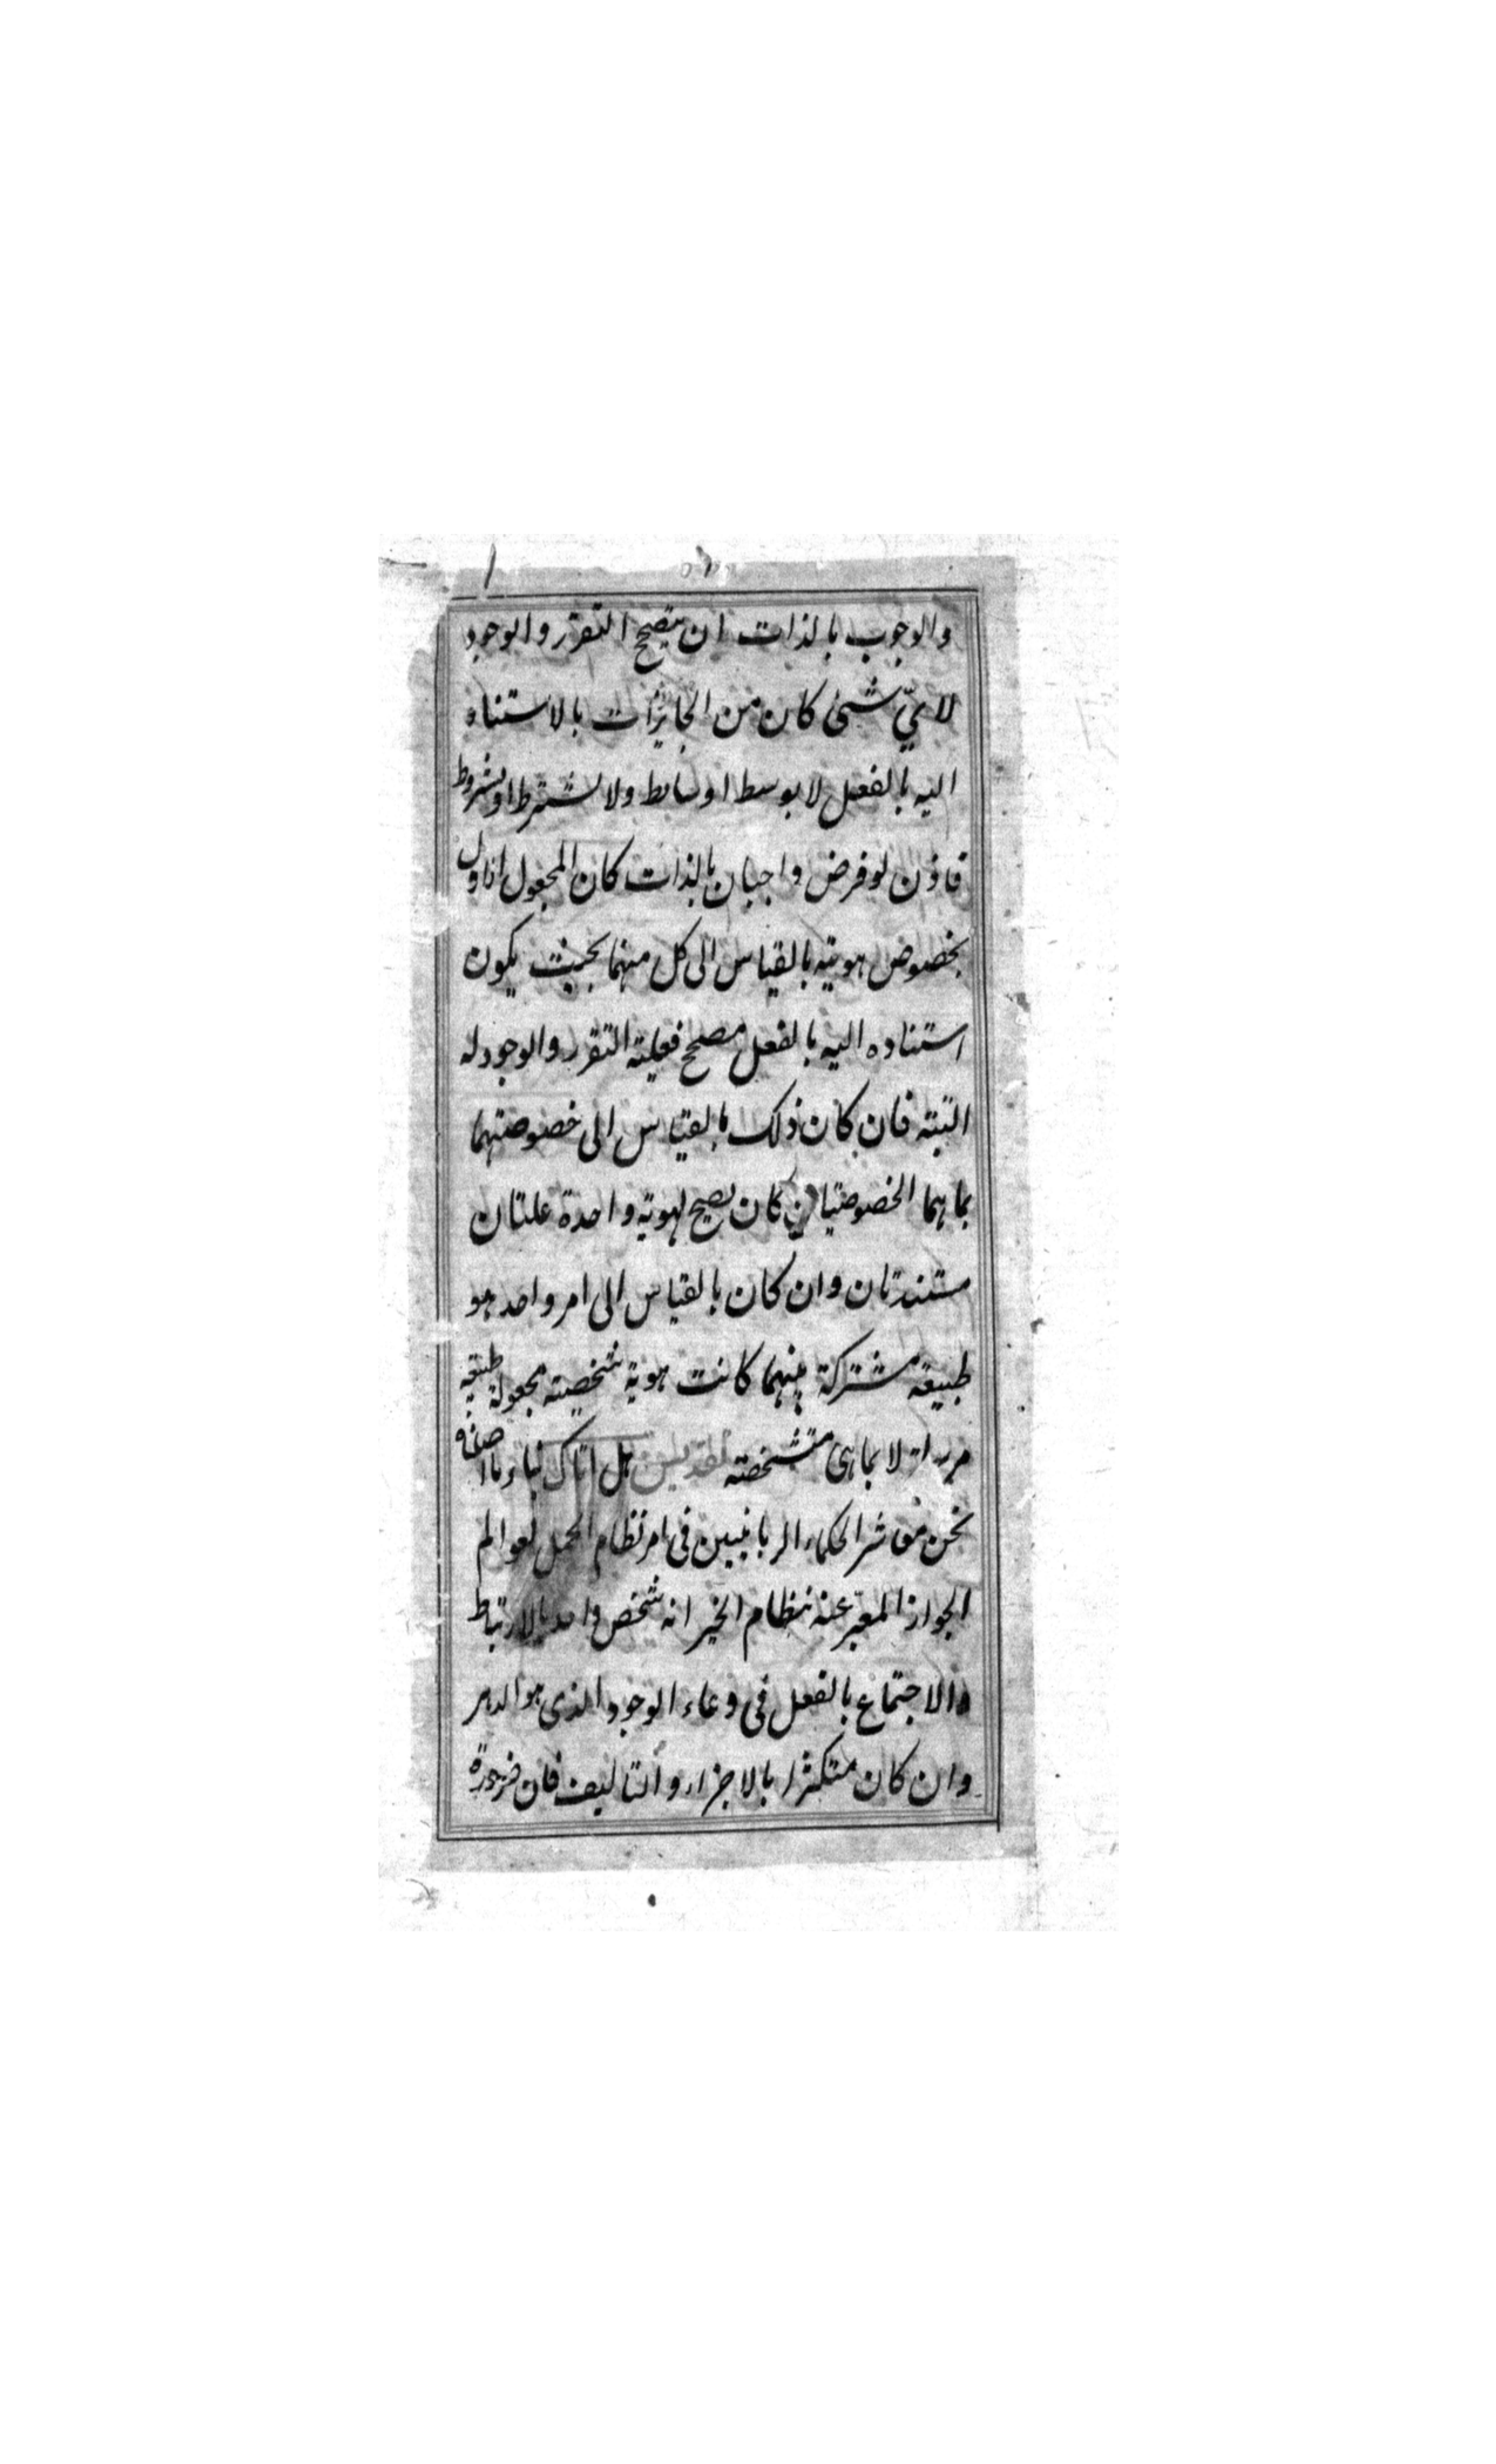 والوجوب بالذات ان يصح التقرر والوجود
لايّ شئ كان من الجايزات بالاستناد
اليه بالفعل لا بوسط او سايط ولا بشرط او بشروط
فاذن لو فرض واجبان بالذات كان المجعول اذا اول
بخصوص هويته بالقياس الى كل منهما بحيث يكون
استناده اليه بالفعل مصحح فعلية التقرر والوجود له
البتة فان كان ذلك بالقياس الى خصوصيتهما
بما هما الخصوصيتان كان يصح لهوية واحدة علتان
مستندتان وان كان بالقياس الى امر واحد هو
طبيعة مشتركة بينهما كانت هوية شخصية مجعولة طبيعة
مرسلة لا بما هى متشخصة تقديس هل اتاك نباء ما اصلناه
نحن معاشر الحكماء الربانيين فى امر نظام الجملى لعوالم
الجواز المعبر عنه بنظام الخير انه شخص واحد بالارتباط
والاجتماع بالفعل فى وعاء الوجود الذى هو الدهر
وان كان متكثرا بالاجزاء والتاليف فان ضرورة